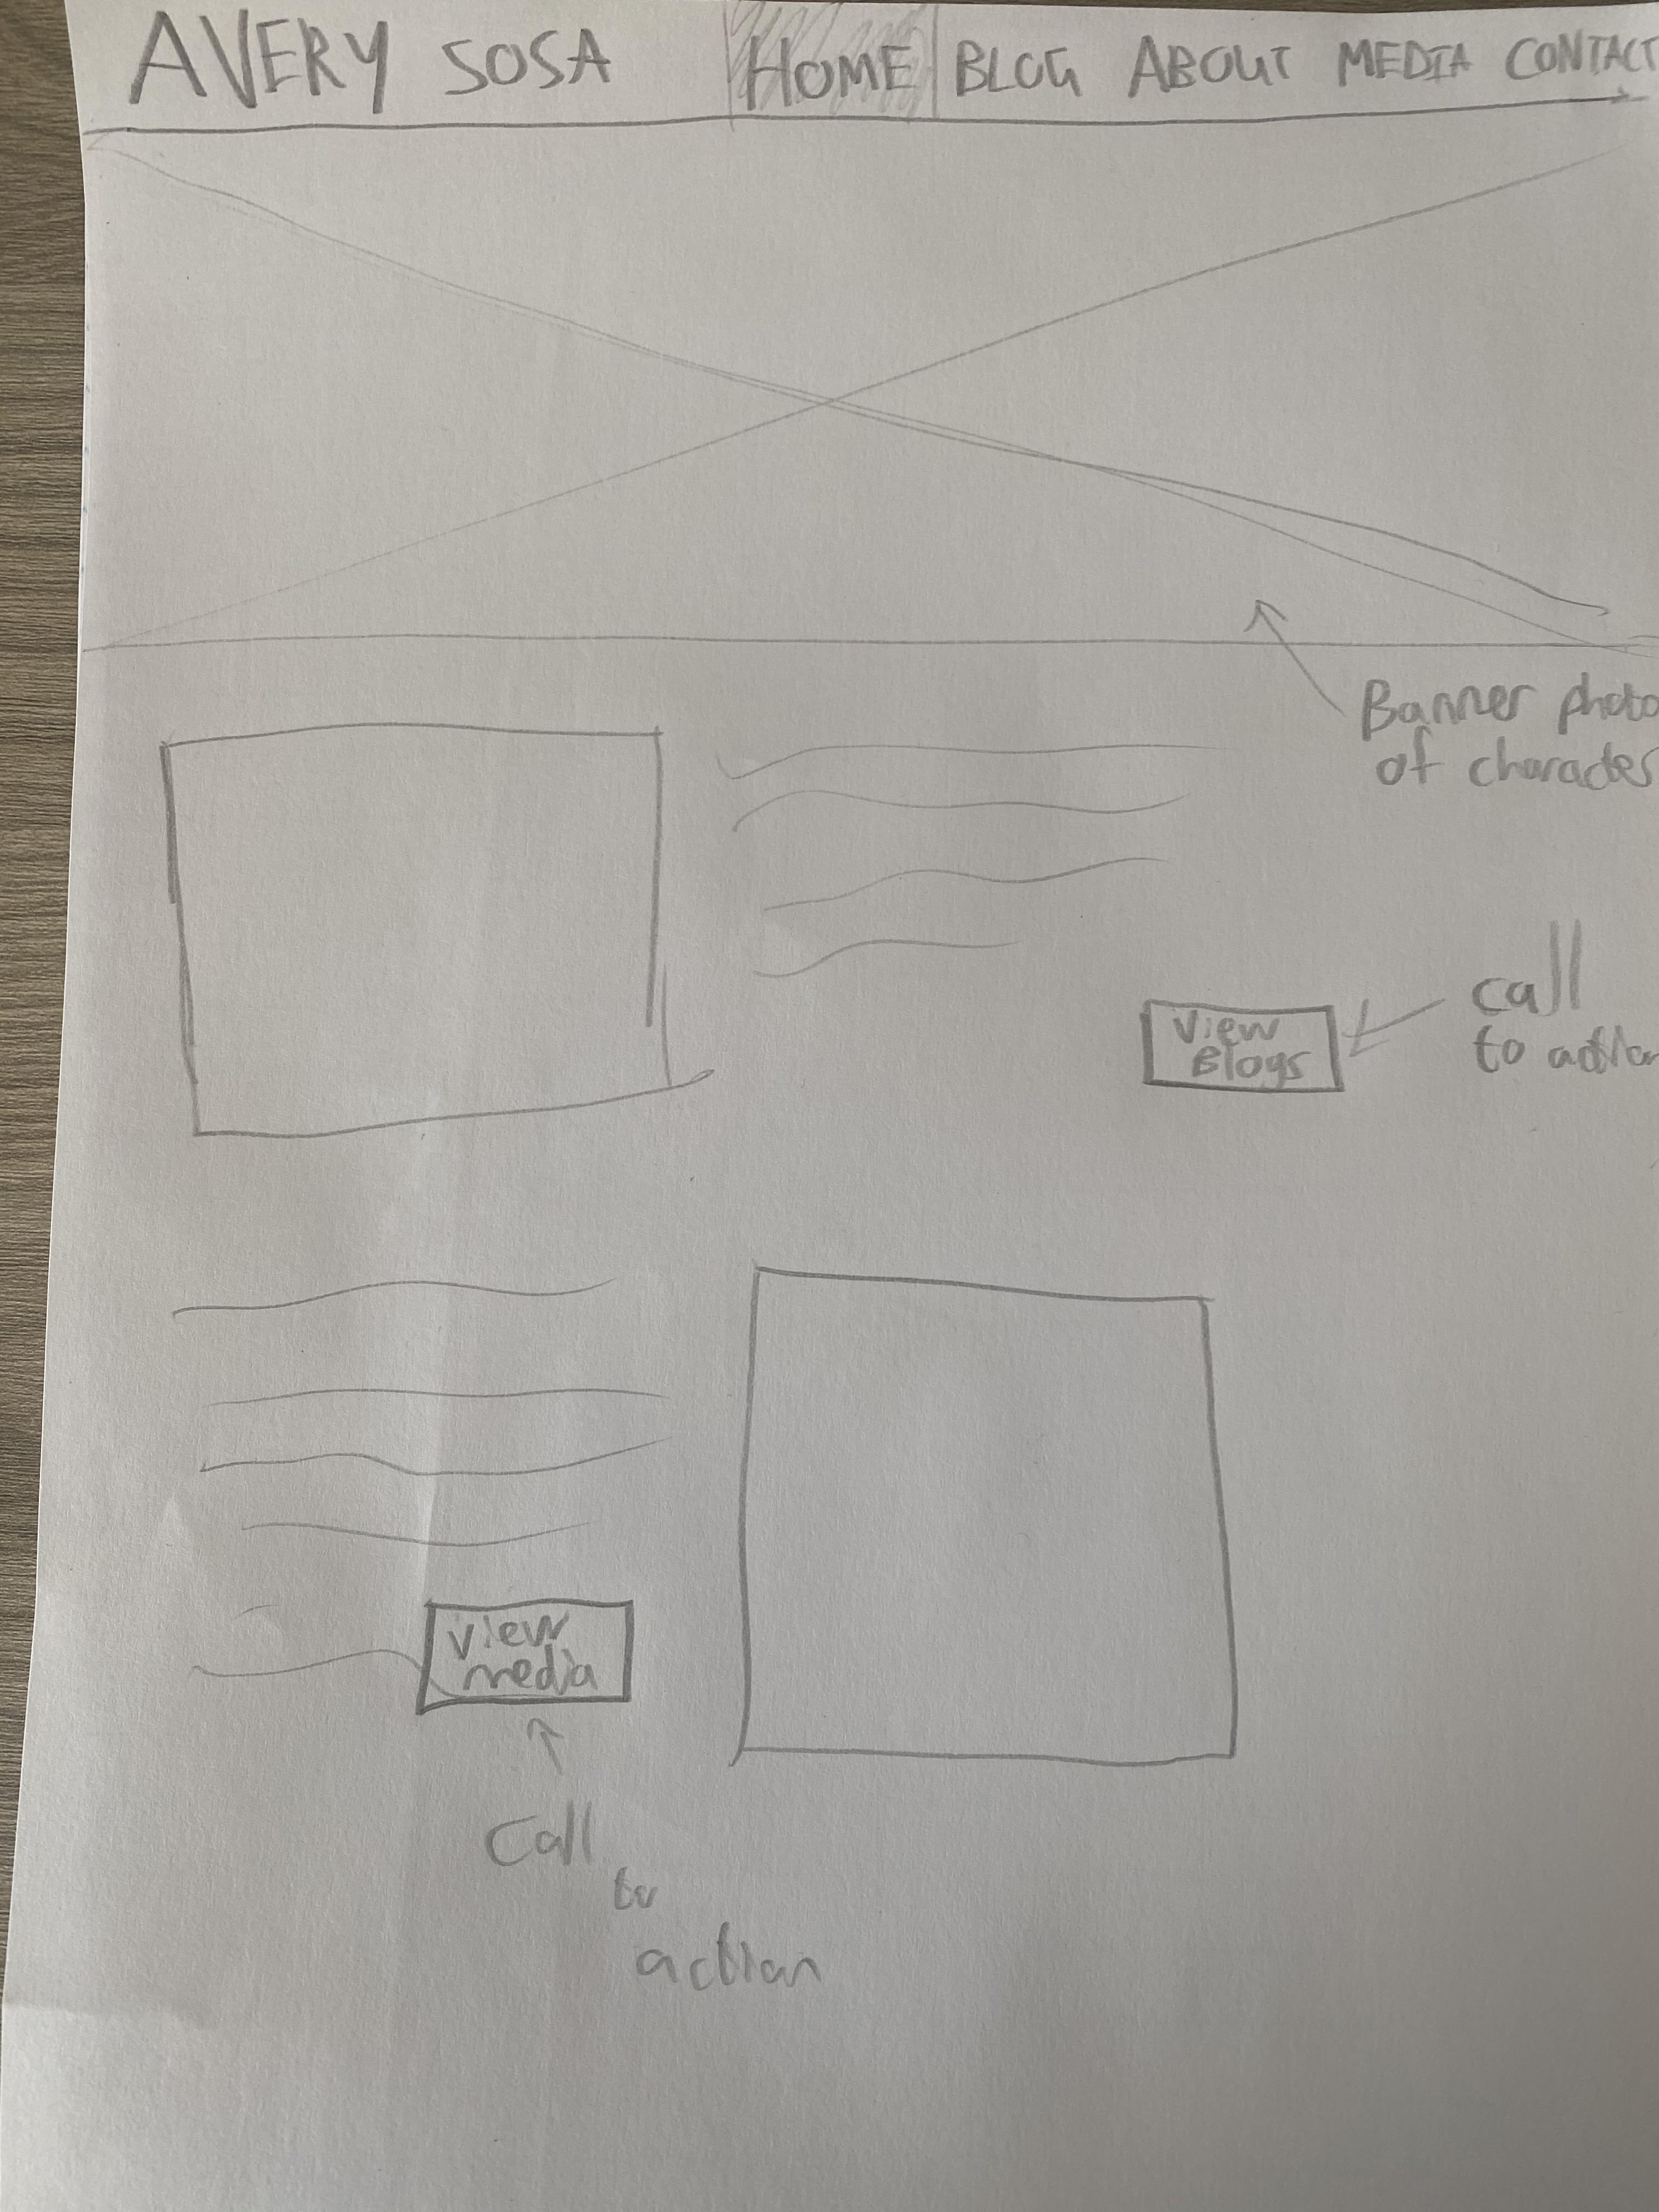 AVERY SOSA HOME BLOG ABOUT MEDIA CONTACT
Banner photo
of character
View
Blogs
call
to action
View
media
Call
to
action